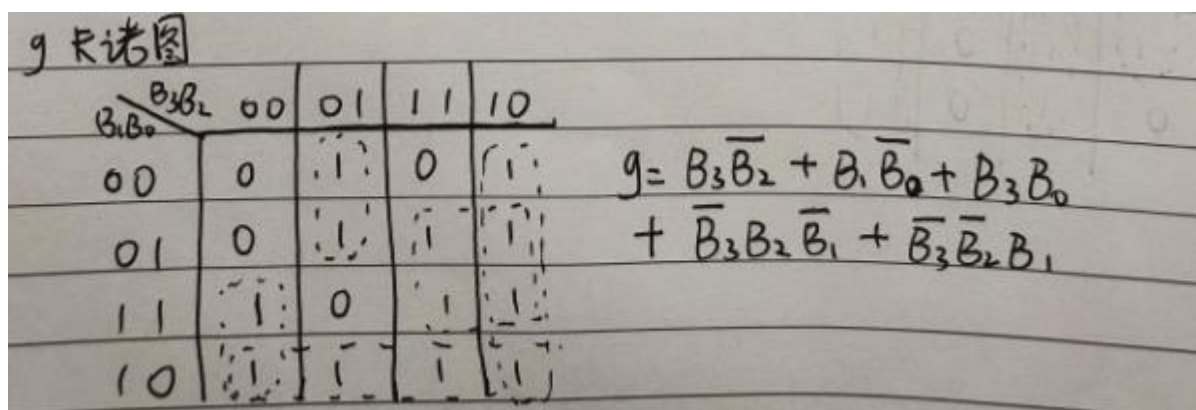 g 卡诺图
B₃B₂ 00 01 11 10
B₁B₀
00 0 1 0 1
01 0 1 1 1
11 1 0 1 1
10 1 1 1 1
g = B₃B̅₂ + B₁B̅₀ + B₃B₀
+ B̅₃B₂B̅₁ + B̅₃B̅₂B₁